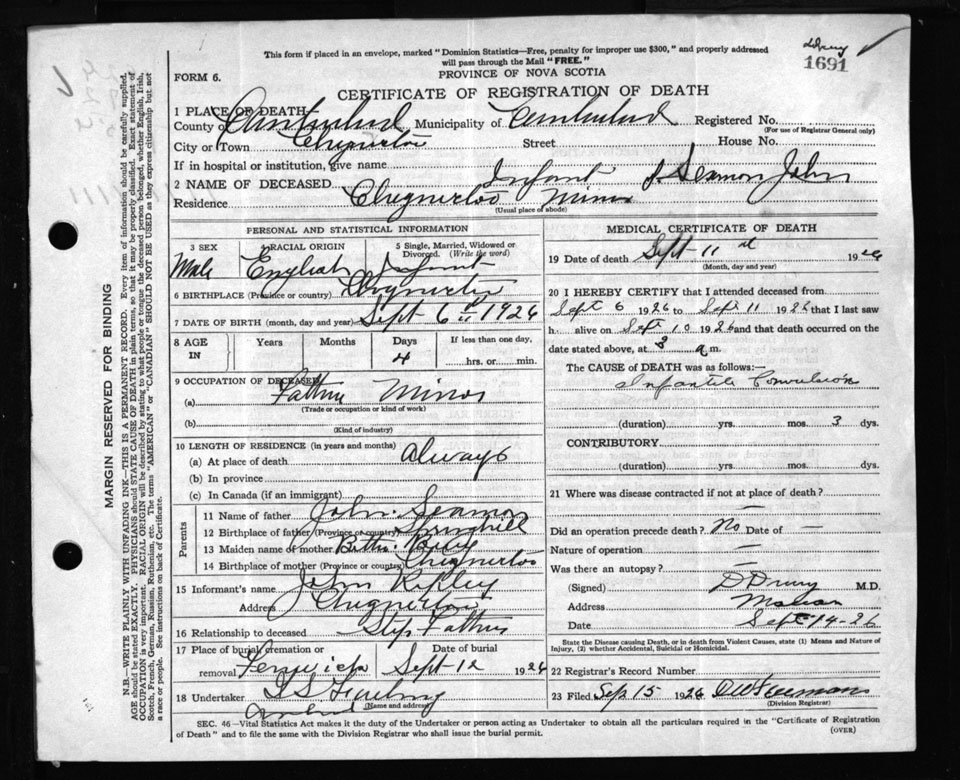 This form if placed in an envelope, marked "Dominion Statistics—Free, penalty for improper use $300," and properly addressed
will pass through the Mail "FREE."
1691
FORM 6.
PROVINCE OF NOVA SCOTIA
CERTIFICATE OF REGISTRATION OF DEATH
1 PLACE OF DEATH
County of Cumberland Municipality of Cumberland Registered No.
(For use of Registrar General only)
City or Town Chignecto Street House No.
If in hospital or institution, give name
2 NAME OF DECEASED Infant J. Seamon John
Residence Chignecto Mines
(Usual place of abode)
PERSONAL AND STATISTICAL INFORMATION
3 SEX Male
4 RACIAL ORIGIN English
5 Single, Married, Widowed or Divorced. (Write the word) Infant
6 BIRTHPLACE (Province or country) Chignecto
7 DATE OF BIRTH (month, day and year) Sept 6th 1926
8 AGE IN Years Months Days 4 If less than one day, hrs. or min.
9 OCCUPATION OF DECEASED
(a) Father Miner
(Trade or occupation or kind of work)
(b)
(Kind of industry)
10 LENGTH OF RESIDENCE (in years and months)
(a) At place of death Always
(b) In province
(c) In Canada (if an immigrant)
Parents
11 Name of father John Seamon
12 Birthplace of father (Province or country) Springhill
13 Maiden name of mother
14 Birthplace of mother (Province or country) Chignecto
15 Informant's name John Ripley
Address Chignecto
16 Relationship to deceased Step Father
17 Place of burial, cremation or removal Fenwick Sept 12 1926
18 Undertaker
(Name and address)
Amherst
MEDICAL CERTIFICATE OF DEATH
19 Date of death Sept 11 1926
(Month, day and year)
20 I HEREBY CERTIFY that I attended deceased from
Sept 6 1926 to Sept 11 1926 that I last saw
h alive on Sept 10 1926 and that death occurred on
date stated above, at 3 a m.
The CAUSE of DEATH was as follows:—
Infantile Convulsion
(duration) yrs. mos. 3 dys.
CONTRIBUTORY
(duration) yrs. mos. dys.
21 Where was disease contracted if not at place of death?
Did an operation precede death? No Date of —
Nature of operation —
Was there an autopsy? —
(Signed) D Drury M.D.
Address Maccan
Date Sept 14-26
State the Disease causing Death, or in death from Violent Causes, state (1) Means and Nature of
Injury, (2) whether Accidental, Suicidal or Homicidal.
22 Registrar's Record Number
23 Filed Sep 15 1926
(Division Registrar)
SEC. 46—Vital Statistics Act makes it the duty of the Undertaker or person acting as Undertaker to obtain all the particulars required in the "Certificate of Registration
of Death" and to file the same with the Division Registrar who shall issue the burial permit.
(OVER)
MARGIN RESERVED FOR BINDING
N.B.—WRITE PLAINLY WITH UNFADING INK—THIS IS A PERMANENT RECORD. Every item of information should be carefully supplied.
AGE should be stated EXACTLY. PHYSICIANS should STATE CAUSE OF DEATH in plain terms, so that it may be properly classified. Exact statement of
OCCUPATION is very important. RACIAL ORIGIN will be described by stating to what people or tongue the deceased person belonged, whether English, Irish,
Scotch, French, German, Russian, Ruthenian, etc. The terms "AMERICAN" or "CANADIAN" SHOULD NOT BE USED as they express citizenship but not
a race or people. See instructions on back of Certificate.